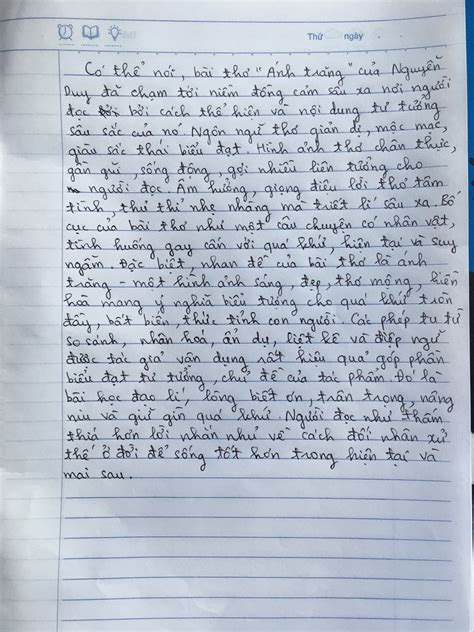 Thứ ngày
Có thể nói, bài thơ "Ánh trăng" của Nguyễn
Duy đã chạm tới niềm đồng cảm sâu xa nơi người
đọc bởi cách thể hiện và nội dung tư tưởng
sâu sắc của nó. Ngôn ngữ thơ giản dị, mộc mạc,
giàu sắc thái biểu đạt. Hình ảnh thơ chân thực,
gần gũi, sống động, gợi nhiều liên tưởng cho
người đọc. Âm hưởng, giọng điệu lời thơ tâm
tình, thư thỉ nhẹ nhàng mà triết lí sâu xa. Bố
cục của bài thơ như một câu chuyện có nhân vật,
tình huống gay cấn với quá khứ, hiện tại và suy
ngẫm. Đặc biệt, nhan đề của bài thơ là ánh
trăng - một hình ảnh sáng, đẹp, thơ mộng, hiền
hoà mang ý nghĩa biểu tượng cho quá khứ tròn
đầy, bất biến, thức tỉnh con người. Các phép tu từ
so sánh, nhân hoá, ẩn dụ, liệt kê và điệp ngữ
được tác giả vận dụng rất hiệu quả góp phần
biểu đạt tư tưởng, chủ đề của tác phẩm. Đó là
bài học đạo lí, lòng biết ơn, trân trọng, nâng
niu và giữ gìn quá khứ. Người đọc như thấm
thía hơn lời nhắn nhủ về cách đối nhân xử
thế ở đời để sống tốt hơn trong hiện tại và
mai sau.